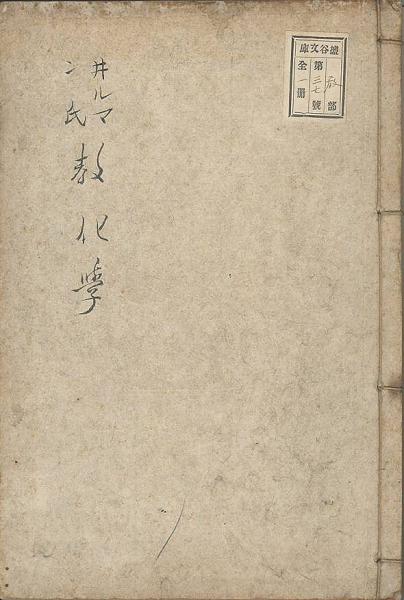 谷文庫
部
第三七號
全一冊
井ルマ
ン氏
教化学